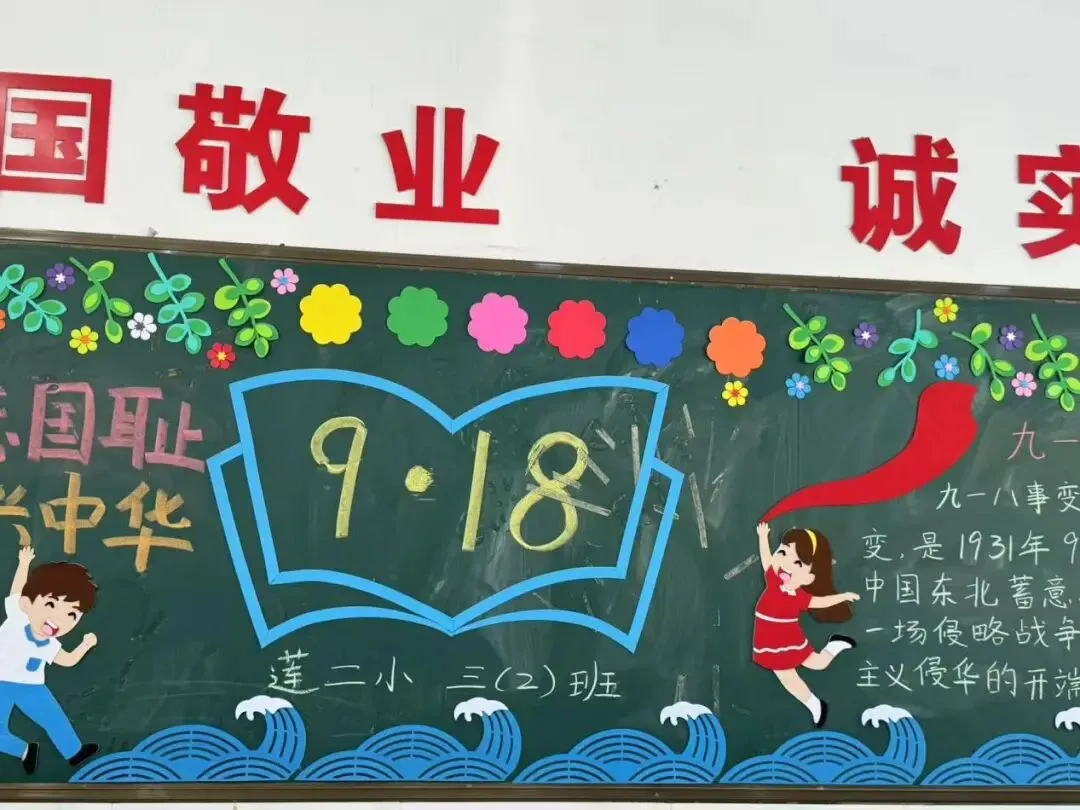 国敬业 诚实
忘国耻
兴中华
9·18
莲二小 三(2)班
九一
九一八事变
变,是1931年9
中国东北蓄意
一场侵略战争
主义侵华的开端